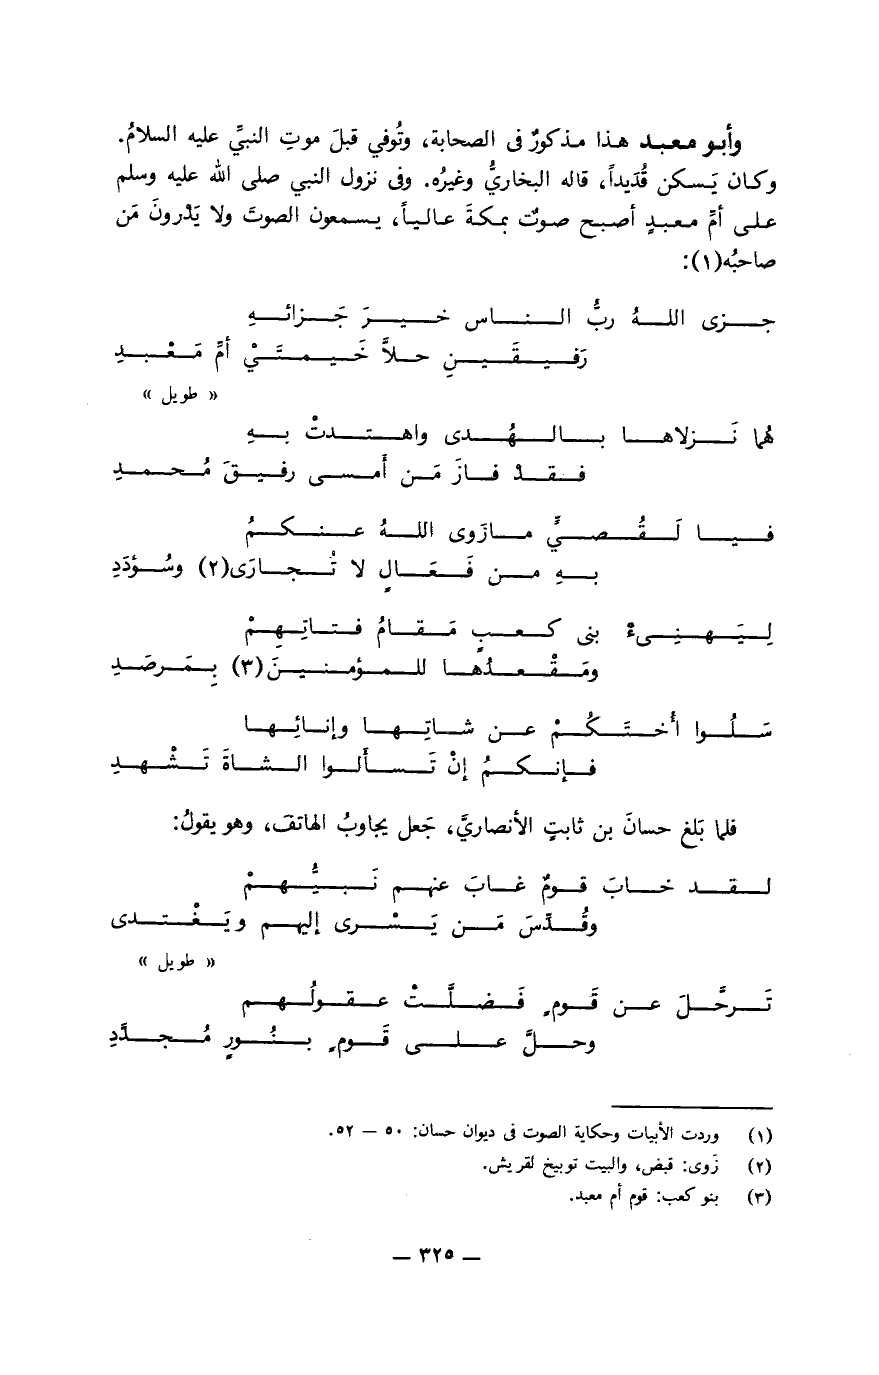 وأبو معبد هذا مذكورٌ فى الصحابة، وتُوفي قبلَ موتِ النبيِّ عليه السلامُ.
وكان يَسكن قُدَيداً، قاله البخاريُّ وغيرُه. وفى نزول النبي صلى الله عليه وسلم
على أمِّ معبدٍ أصبح صوتٌ بمكةَ عالياً، يسمعون الصوتَ ولا يَدْرونَ مَن
صاحبُه(١):
جزى اللهُ ربُّ الناس خيرَ جَزائهِ
رَفيقَينِ حلاَّ خَيمتَيْ أمِّ مَعْبدِ
« طويل »
هُما نَزلاها بالهُدى واهتدتْ بهِ
فقدْ فازَ مَن أَمسى رفيقَ مُحمدِ
فيا لَقُصيٍّ مازَوى اللهُ عنكمُ
بهِ من فَعَالٍ لا تُجارَى(٢) وسُؤدَدِ
لِيَهنِىءْ بنى كعبٍ مَقامُ فتاتِهِمْ
ومَقْعدُها للمؤمنينَ(٣) بِمَرصَدِ
سَلُوا أُختَكُمْ عن شاتِها وإنائِها
فإنكمُ إنْ تَسألوا الشاةَ تَشْهدِ
فلما بَلغ حسانَ بن ثابتٍ الأنصاريَّ، جَعل يجاوبُ الهاتفَ، وهو يقولُ:
لقد خابَ قومٌ غابَ عنهم نَبيُّهمْ
وقُدِّسَ مَن يَسْرى إليهم ويَغْتدى
« طويل »
تَرحَّلَ عن قَومٍ فَضلَّتْ عقولُهم
وحلَّ على قَومٍ بنُورٍ مُجدَّدِ
(١) وردت الأبيات وحكاية الصوت فى ديوان حسان: ٥٠ – ٥٢.
(٢) زَوى: قبض، والبيت توبيخ لقريش.
(٣) بنو كعب: قوم أم معبد.
— ٣٢٥ —